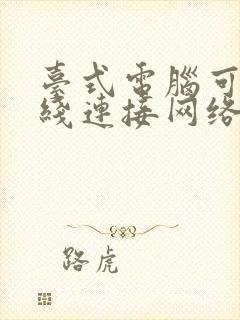 臺式電腦可
綫連接网络
路虎